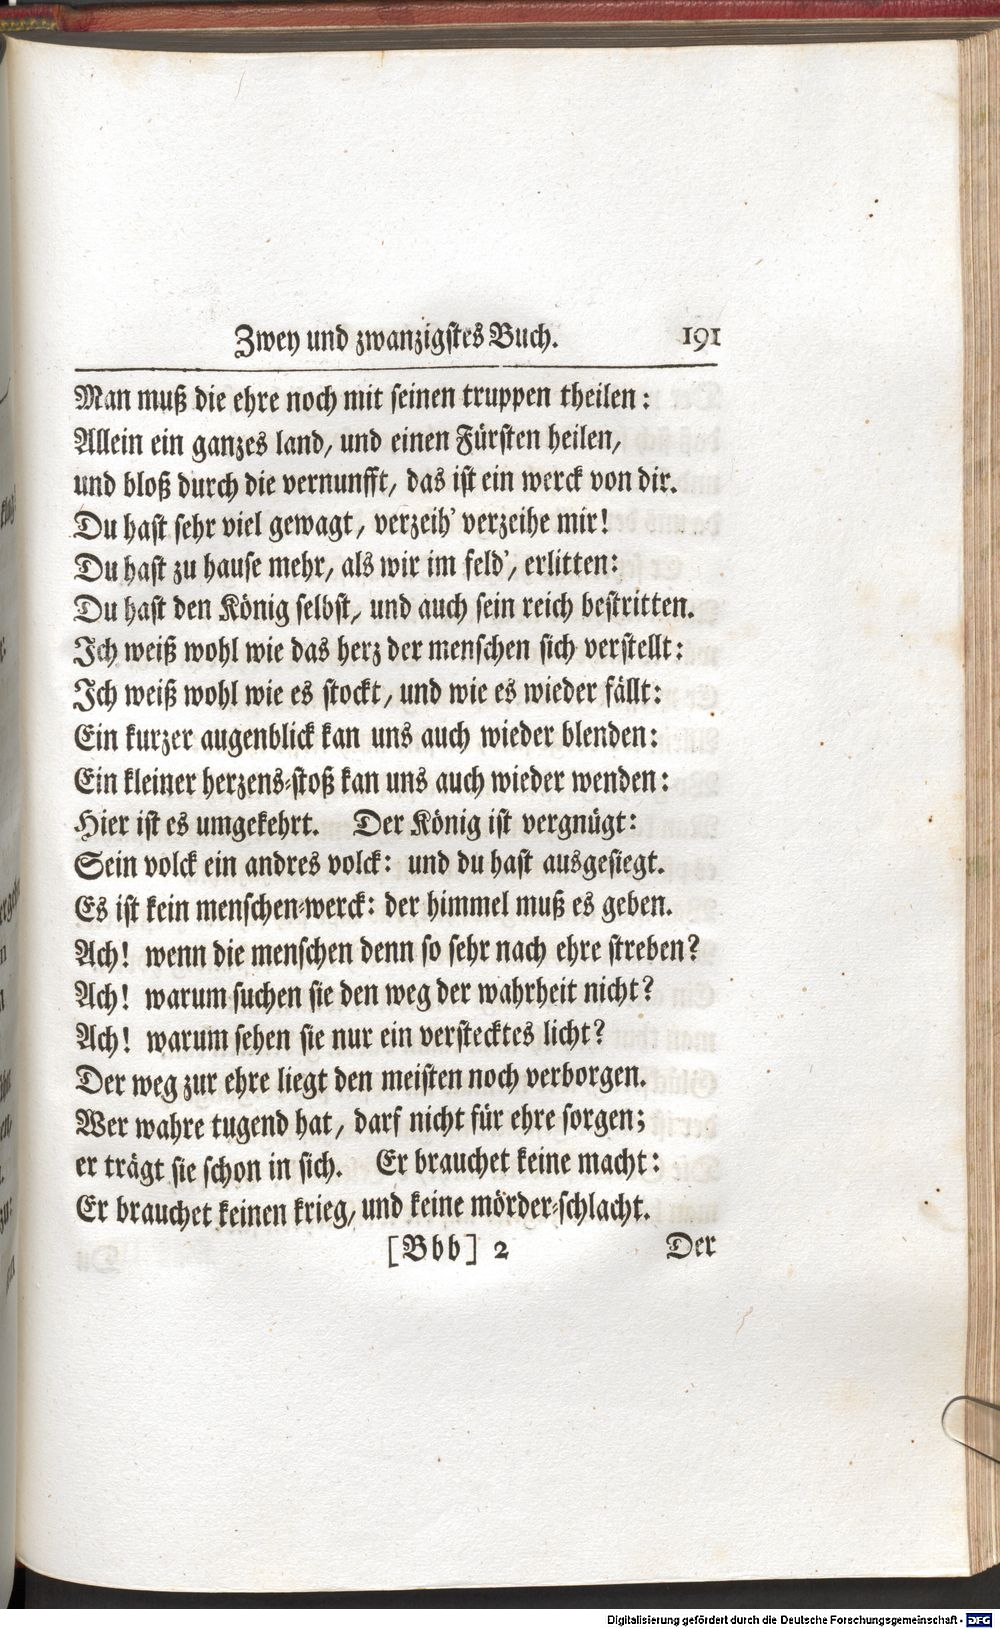 Zwey und zwanzigstes Buch. 191
Man muß die ehre noch mit seinen truppen theilen:
Allein ein ganzes land, und einen Fürsten heilen,
und bloß durch die vernunfft, das ist ein werck von dir.
Du hast sehr viel gewagt, verzeih' verzeihe mir!
Du hast zu hause mehr, als wir im feld', erlitten:
Du hast den König selbst, und auch sein reich bestritten.
Ich weiß wohl wie das herz der menschen sich verstellt:
Ich weiß wohl wie es stockt, und wie es wieder fällt:
Ein kurzer augenblick kan uns auch wieder blenden:
Ein kleiner herzens-stoß kan uns auch wieder wenden:
Hier ist es umgekehrt. Der König ist vergnügt:
Sein volck ein andres volck: und du hast ausgesiegt.
Es ist kein menschen-werck: der himmel muß es geben.
Ach! wenn die menschen denn so sehr nach ehre streben?
Ach! warum suchen sie den weg der wahrheit nicht?
Ach! warum sehen sie nur ein verstecktes licht?
Der weg zur ehre liegt den meisten noch verborgen.
Wer wahre tugend hat, darf nicht für ehre sorgen;
er trägt sie schon in sich. Er brauchet keine macht:
Er brauchet keinen krieg, und keine mörder-schlacht.
[Bbb] 2 Der
Digitalisierung gefördert durch die Deutsche Forschungsgemeinschaft - DFG